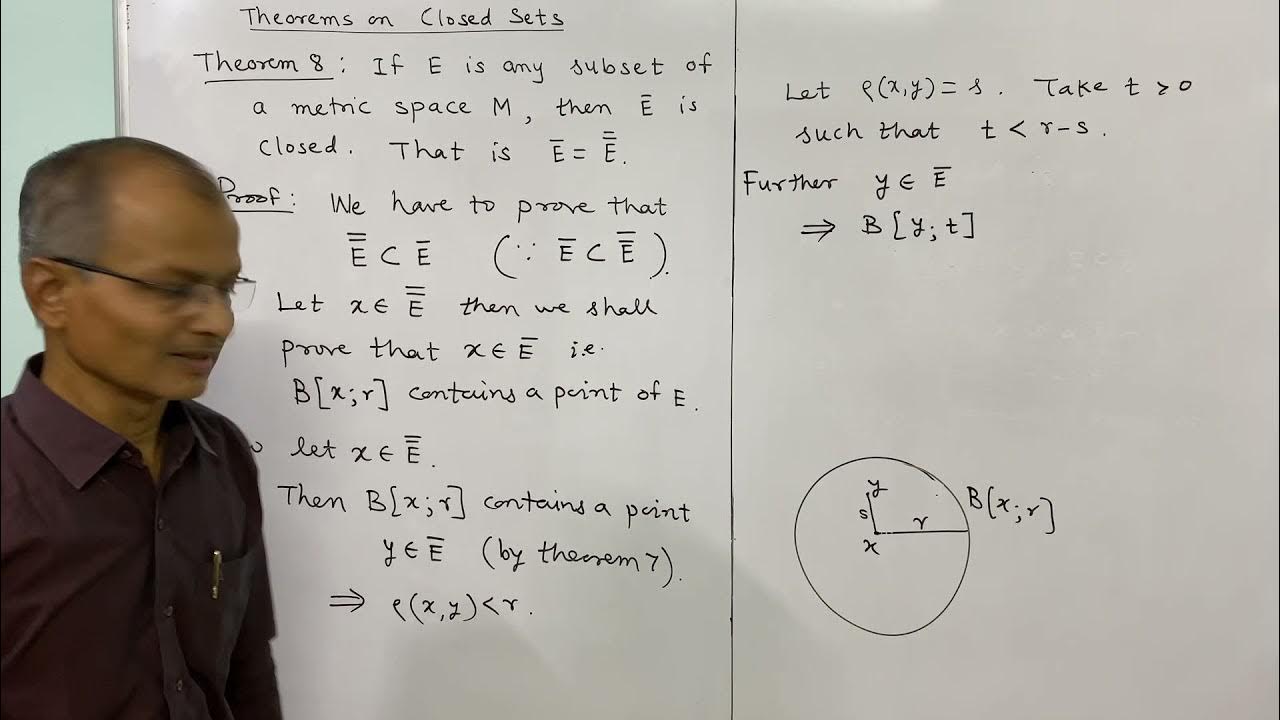 Theorems on Closed Sets
Theorem 8: If E is any subset of
a metric space M, then Ē is
closed. That is Ē = E̿.
Proof: We have to prove that
E̿ ⊂ Ē (∵ Ē ⊂ E̿).
Let x ∈ E̿ then we shall
prove that x ∈ Ē i.e.
B[x;r] contains a point of E.
let x ∈ E̿.
Then B[x;r] contains a point
y ∈ Ē (by theorem 7).
⇒ ρ(x,y) < r.
Let ρ(x,y) = s. Take t > 0
such that t < r-s.
Further y ∈ Ē
⇒ B[y;t]
y
s
r
x
B[x;r]